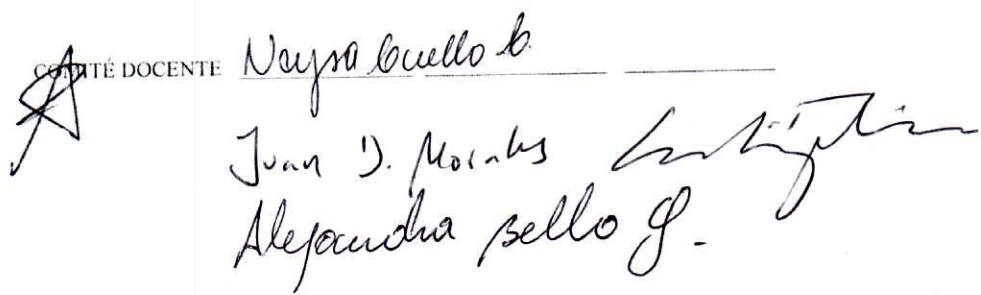 COMITÉ DOCENTE Neysa Cuello C.
Juan D. Morales
Alejandra Bello G.